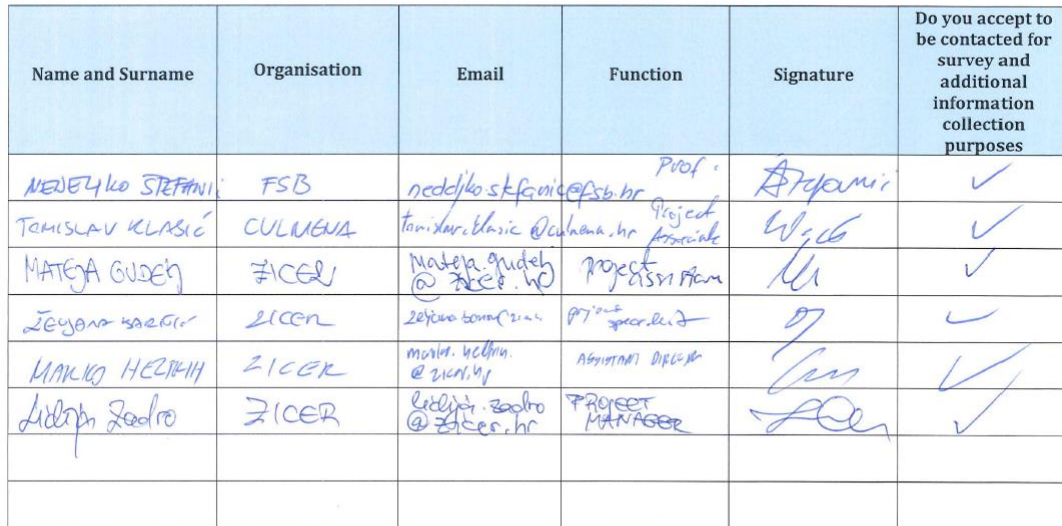 Name and Surname
Organisation
Email
Function
Signature
Do you accept to
be contacted for
survey and
additional
information
collection
purposes
NEDELJKO ŠTEFANIĆ
FSB
nedeljko.stefanic@fsb.hr
Prof.
TOMISLAV KLASIĆ
CULMENA
tomislav.klasic@culmena.hr
Project
Associate
MATEJA GUDELJ
ZICER
mateja.gudelj
@zicer.hr
project
assistant
ŽELJANA
ZICER
project
specialist
MARKO
ZICER
@zicer.hr
ASSISTANT DIRECTOR
Lidija Zadro
ZICER
lidija.zadro
@zicer.hr
PROJECT
MANAGER